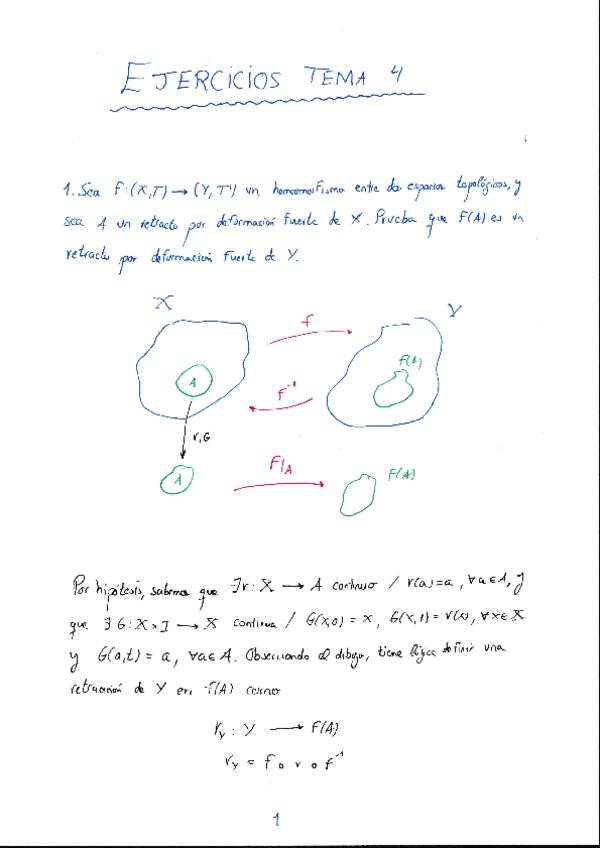 EJERCICIOS TEMA 4
1. Sea F:(X,T) → (Y,T') un homeomorfismo entre dos espacios topológicos, y
sea A un retracto por deformación fuerte de X. Prueba que F(A) es un
retracto por deformación fuerte de Y.
X
f
Y
A
F(A)
f⁻¹
r,G
A
F|_A
F(A)
Por hipótesis, sabemos que ∃r: X → A continua / r(a)=a, ∀a∈A, y
que ∃ G: X×I → X continua / G(x,0) = x, G(x,1) = r(x), ∀x∈X
y G(a,t) = a, ∀a∈A. Observando el dibujo, tiene lógica definir una
retracción de Y en f(A) como
r_Y : Y → F(A)
r_Y = f ∘ r ∘ f⁻¹
1